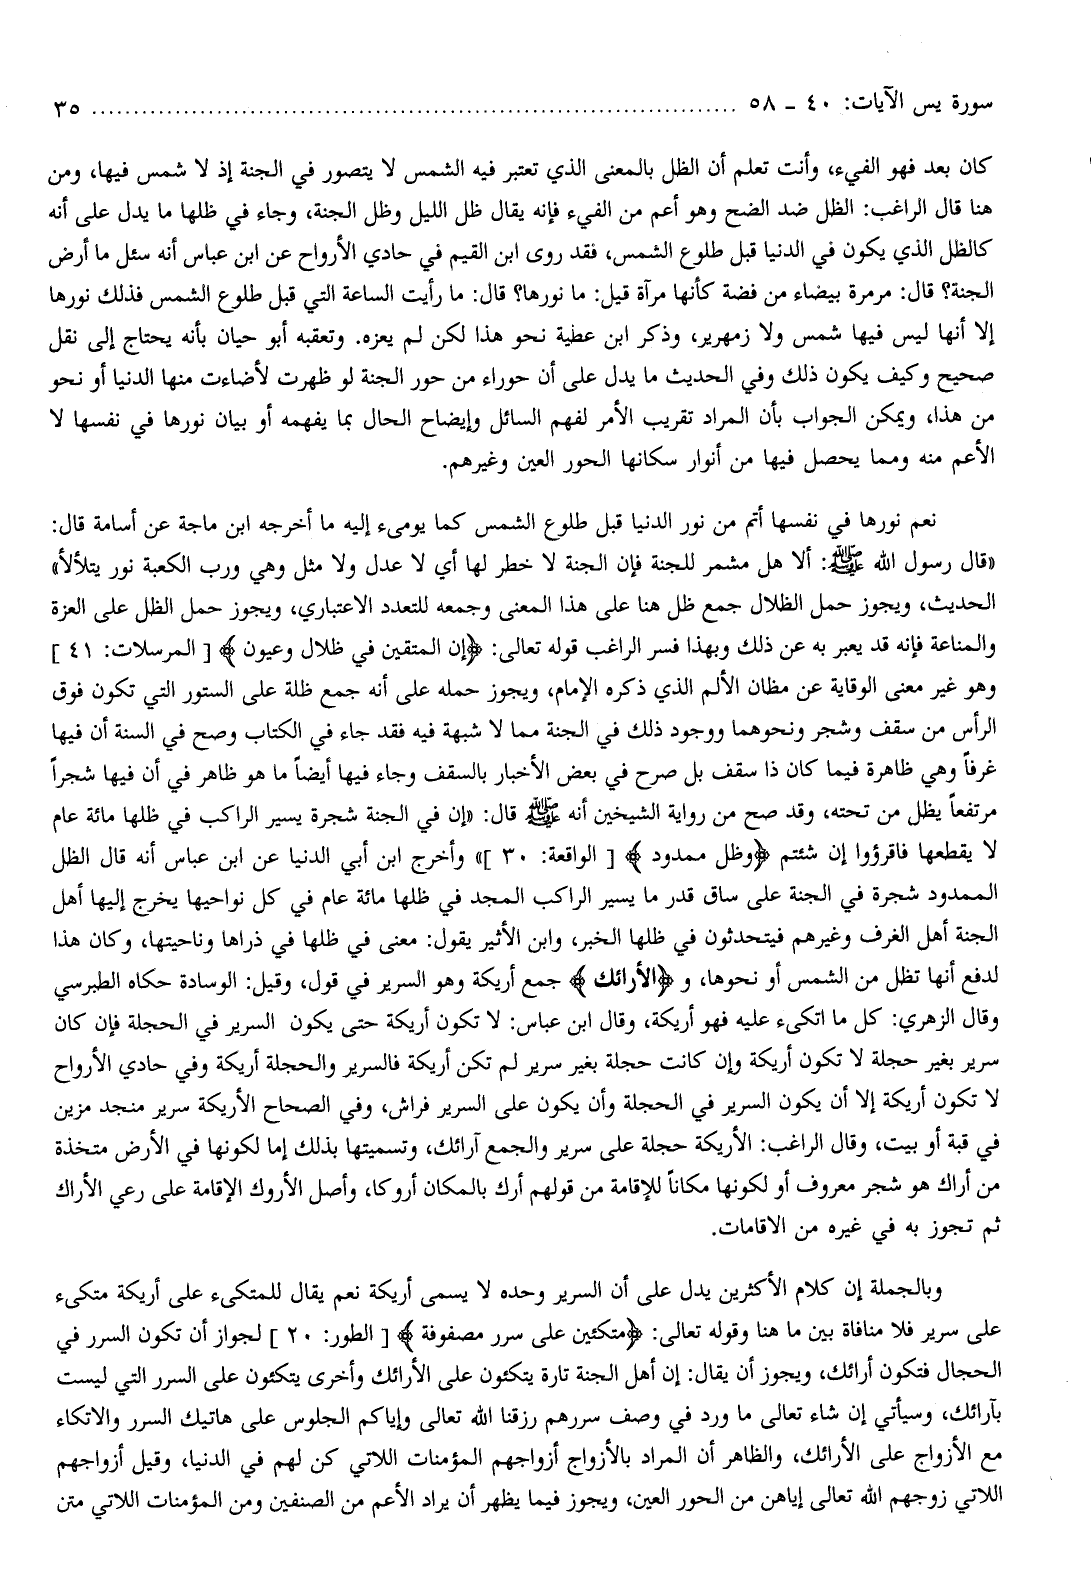 سورة يس الآيات: ٤٠ ـ ٥٨ ........................................................ ٣٥
كان بعد فهو الفيء، وأنت تعلم أن الظل بالمعنى الذي تعتبر فيه الشمس لا يتصور في الجنة إذ لا شمس فيها، ومن
هنا قال الراغب: الظل ضد الضح وهو أعم من الفيء فإنه يقال ظل الليل وظل الجنة، وجاء في ظلها ما يدل على أنه
كالظل الذي يكون في الدنيا قبل طلوع الشمس، فقد روى ابن القيم في حادي الأرواح عن ابن عباس أنه سئل ما أرض
الجنة؟ قال: مرمرة بيضاء من فضة كأنها مرآة قيل: ما نورها؟ قال: ما رأيت الساعة التي قبل طلوع الشمس فذلك نورها
إلا أنها ليس فيها شمس ولا زمهرير، وذكر ابن عطية نحو هذا لكن لم يعزه. وتعقبه أبو حيان بأنه يحتاج إلى نقل
صحيح وكيف يكون ذلك وفي الحديث ما يدل على أن حوراء من حور الجنة لو ظهرت لأضاءت منها الدنيا أو نحو
من هذا، ويمكن الجواب بأن المراد تقريب الأمر لفهم السائل وإيضاح الحال بما يفهمه أو بيان نورها في نفسها لا
الأعم منه ومما يحصل فيها من أنوار سكانها الحور العين وغيرهم.
نعم نورها في نفسها أتم من نور الدنيا قبل طلوع الشمس كما يومىء إليه ما أخرجه ابن ماجة عن أسامة قال:
«قال رسول الله ﷺ: ألا هل مشمر للجنة فإن الجنة لا خطر لها أي لا عدل ولا مثل وهي ورب الكعبة نور يتلألأ»
الحديث، ويجوز حمل الظلال جمع ظل هنا على هذا المعنى وجمعه للتعدد الاعتباري، ويجوز حمل الظل على العزة
والمناعة فإنه قد يعبر به عن ذلك وبهذا فسر الراغب قوله تعالى: ﴿إن المتقين في ظلال وعيون﴾ [ المرسلات: ٤١ ]
وهو غير معنى الوقاية عن مظان الألم الذي ذكره الإمام، ويجوز حمله على أنه جمع ظلة على الستور التي تكون فوق
الرأس من سقف وشجر ونحوهما ووجود ذلك في الجنة مما لا شبهة فيه فقد جاء في الكتاب وصح في السنة أن فيها
غرفاً وهي ظاهرة فيما كان ذا سقف بل صرح في بعض الأخبار بالسقف وجاء فيها أيضاً ما هو ظاهر في أن فيها شجراً
مرتفعاً يظل من تحته، وقد صح من رواية الشيخين أنه ﷺ قال: «إن في الجنة شجرة يسير الراكب في ظلها مائة عام
لا يقطعها فاقرؤوا إن شئتم ﴿وظل ممدود﴾ [ الواقعة: ٣٠ ]» وأخرج ابن أبي الدنيا عن ابن عباس أنه قال الظل
الممدود شجرة في الجنة على ساق قدر ما يسير الراكب المجد في ظلها مائة عام في كل نواحيها يخرج إليها أهل
الجنة أهل الغرف وغيرهم فيتحدثون في ظلها الخبر، وابن الأثير يقول: معنى في ظلها في ذراها وناحيتها، وكان هذا
لدفع أنها تظل من الشمس أو نحوها، و ﴿الأرائك﴾ جمع أريكة وهو السرير في قول، وقيل: الوسادة حكاه الطبرسي
وقال الزهري: كل ما اتكىء عليه فهو أريكة، وقال ابن عباس: لا تكون أريكة حتى يكون السرير في الحجلة فإن كان
سرير بغير حجلة لا تكون أريكة وإن كانت حجلة بغير سرير لم تكن أريكة فالسرير والحجلة أريكة وفي حادي الأرواح
لا تكون أريكة إلا أن يكون السرير في الحجلة وأن يكون على السرير فراش، وفي الصحاح الأريكة سرير منجد مزين
في قبة أو بيت، وقال الراغب: الأريكة حجلة على سرير والجمع آرائك، وتسميتها بذلك إما لكونها في الأرض متخذة
من أراك هو شجر معروف أو لكونها مكاناً للإقامة من قولهم أرك بالمكان أروكا، وأصل الأروك الإقامة على رعي الأراك
ثم تجوز به في غيره من الاقامات.
وبالجملة إن كلام الأكثرين يدل على أن السرير وحده لا يسمى أريكة نعم يقال للمتكىء على أريكة متكىء
على سرير فلا منافاة بين ما هنا وقوله تعالى: ﴿متكئين على سرر مصفوفة﴾ [ الطور: ٢٠ ] لجواز أن تكون السرر في
الحجال فتكون أرائك، ويجوز أن يقال: إن أهل الجنة تارة يتكئون على الأرائك وأخرى يتكئون على السرر التي ليست
بآرائك، وسيأتي إن شاء تعالى ما ورد في وصف سررهم رزقنا الله تعالى وإياكم الجلوس على هاتيك السرر والاتكاء
مع الأزواج على الأرائك، والظاهر أن المراد بالأزواج أزواجهم المؤمنات اللاتي كن لهم في الدنيا، وقيل أزواجهم
اللاتي زوجهم الله تعالى إياهن من الحور العين، ويجوز فيما يظهر أن يراد الأعم من الصنفين ومن المؤمنات اللاتي متن